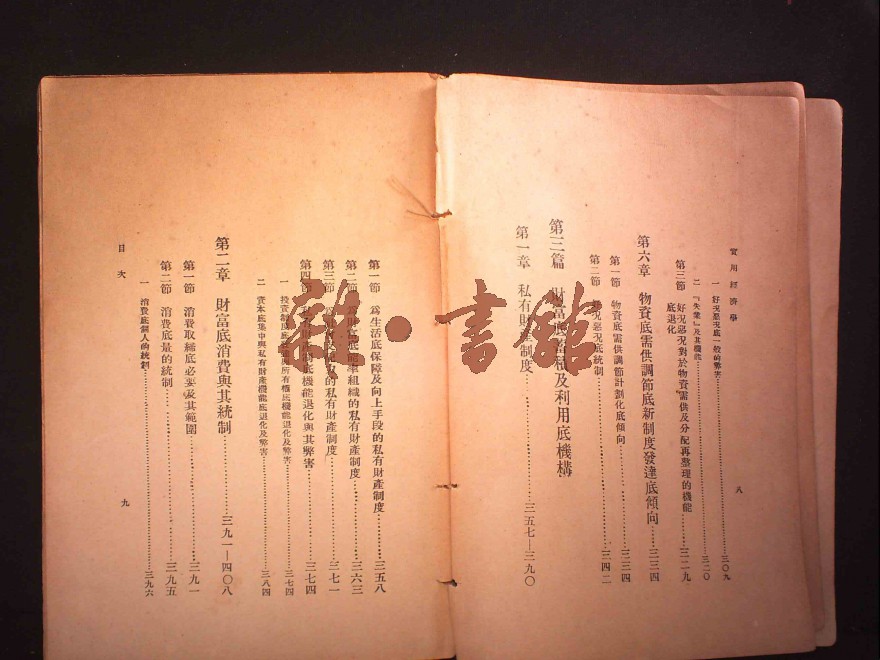 實用經濟學
一 好況惡況底一般的弊害……三〇九
二 「失業」及其機能……三二〇
第三節 好況惡況對於物資需供及分配再整理的機能
底退化……三二九
第六章 物資底需供調節底新制度發達底傾向……三三四
第一節 物資底需供調節計劃化底傾向……三三四
第二節 好況惡況底統制……三四二
第三篇 財富底蓄積及利用底機構
第一章 私有財產制度……三五七—三九〇
八
第一節 爲生活底保障及向上手段的私有財產制度……三五八
第二節 爲財富底能率組織的私有財產制度……三六三
第三節 的私有財產制度……三七一
第四節 私有財產制度底機能退化與其弊害……三七四
一 投資制度底發達與所有權底機能退化及弊害……三七四
二 資本底集中與私有財產機能底退化及弊害……三八四
第二章 財富底消費與其統制……三九一—四〇八
第一節 消費取締底必要及其範圍……三九一
第二節 消費底量的統制……三九五
一 消費底個人的統制……三九六
目次
九
雜·書館